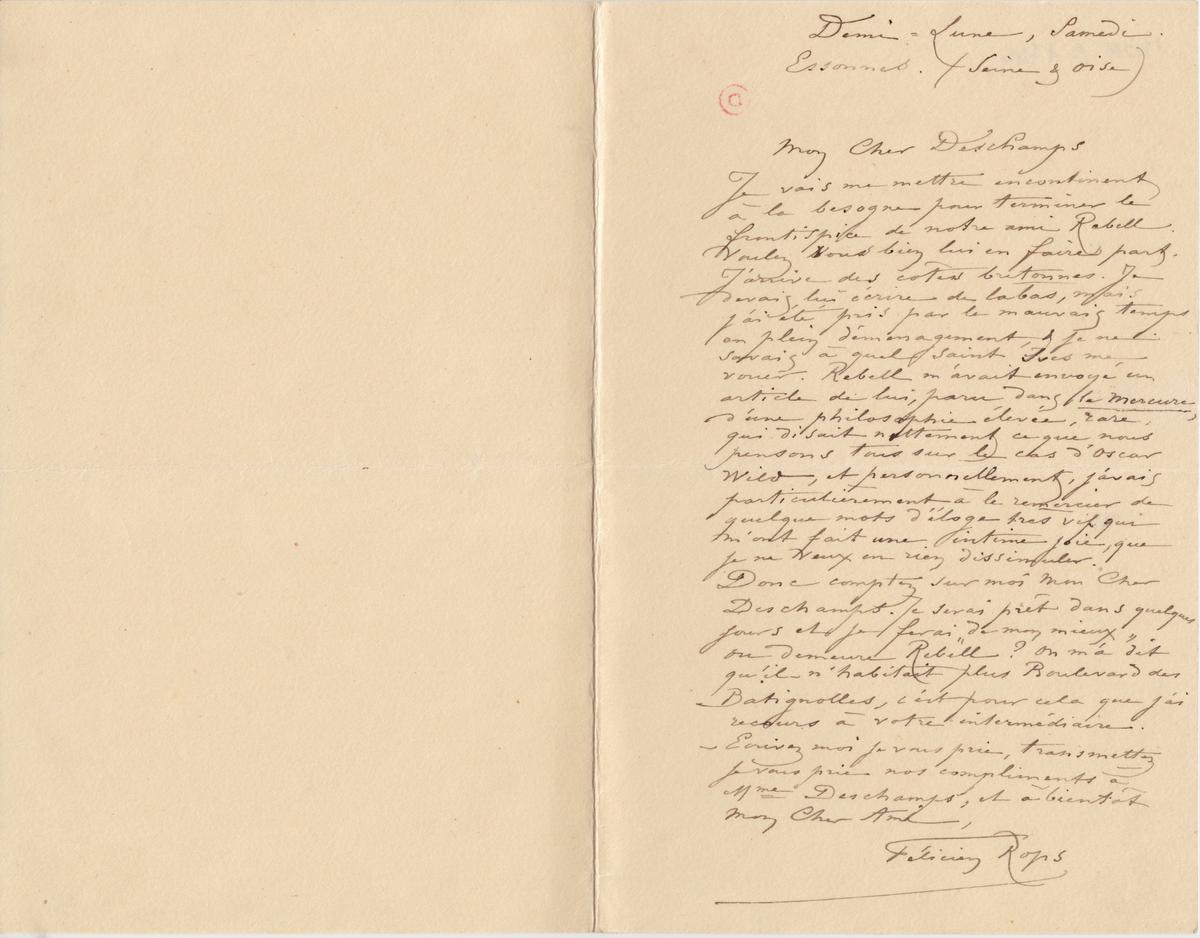 Demi=Lune, Samedi.
Essonnes. (Seine & Oise)
Mon Cher Deschamps
Je vais me mettre incontinent
à la besogne pour terminer le
frontispice de notre ami Rebell.
Voulez Vous bien lui en faire part.
J'arrive des cotes bretonnes. Je
devais lui écrire de labas, mais
j'ai été pris par le mauvais temps
en plein déménagement, & je ne
savais à quel saint Yves me
vouer. Rebell m'avait envoyé un
article de lui, paru dans le Mercure,
d'une philosophie élevée, rare,
qui disait nettement ce que nous
pensons tous sur le cas d'Oscar
Wild, et personnellement, j'avais
particulièrement à le remercier de
quelque mots d'éloge tres vif qui
m'ont fait une intime joie, que
je ne Veux en rien dissimuler.
Donc comptez sur moi Mon Cher
Deschamps. Je serai prêt dans quelques
jours et je ferai "de mon mieux"
ou demeure Rebell ? On m'a dit
qu'il n'habitait plus Boulevard des
Batignolles, c'est pour cela que j'ai
recours à votre intermédiaire.
– Ecrivez moi je vous prie, transmettez
je vous prie nos compliments à
Mme Deschamps, et à bientôt
Mon Cher Ami,
Félicien Rops